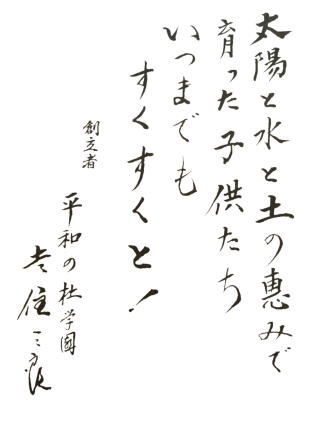 太陽と水と土の恵みで
育った子供たち
いつまでも
すくすくと!
創立者
平和の杜学園
住三